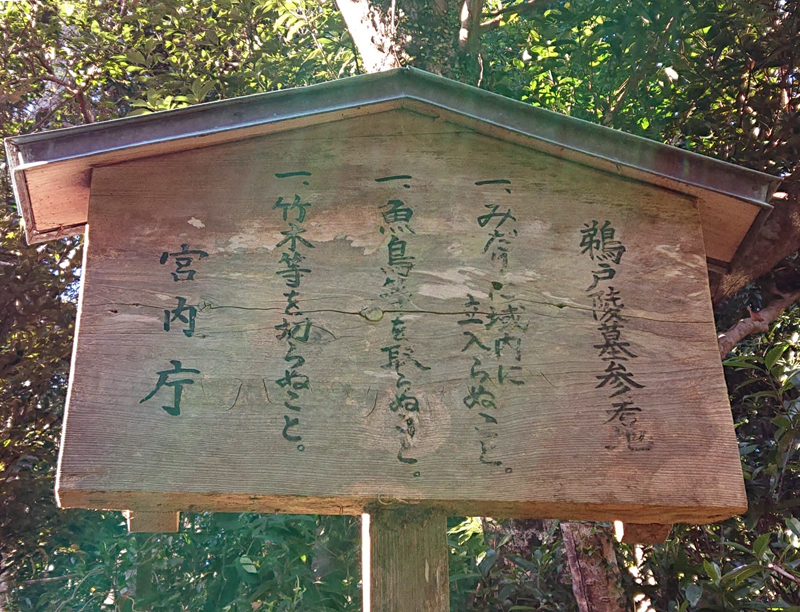 鵜戸陵墓参考地
一、みだりに域内に
立入らぬこと。
一、魚鳥等を取らぬこと。
一、竹木等を切らぬこと。
宮内庁